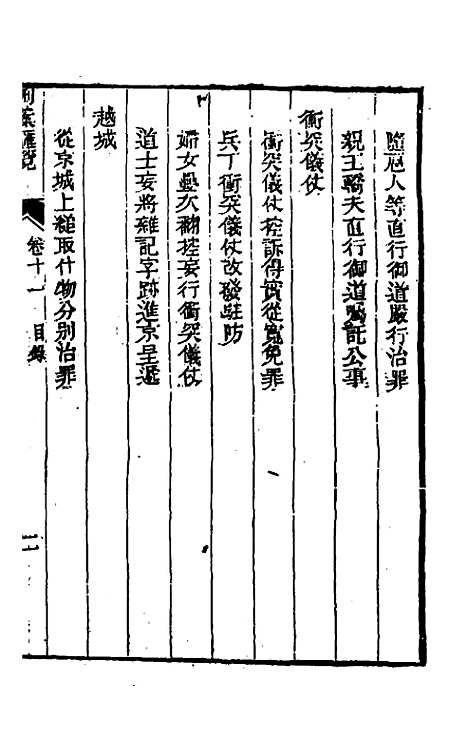 隨扈人等直行御道嚴行治罪
親王轎夫直行御道囑託公事
衝突儀仗
衝突儀仗控訴得實從寬免罪
兵丁衝突儀仗改發駐防
婦女壘次翻控妄行衝突儀仗
道士妄將雜記字跡進京呈遞
越城
從京城上縋取什物分別治罪
刑案匯覽
卷十一 目錄
二